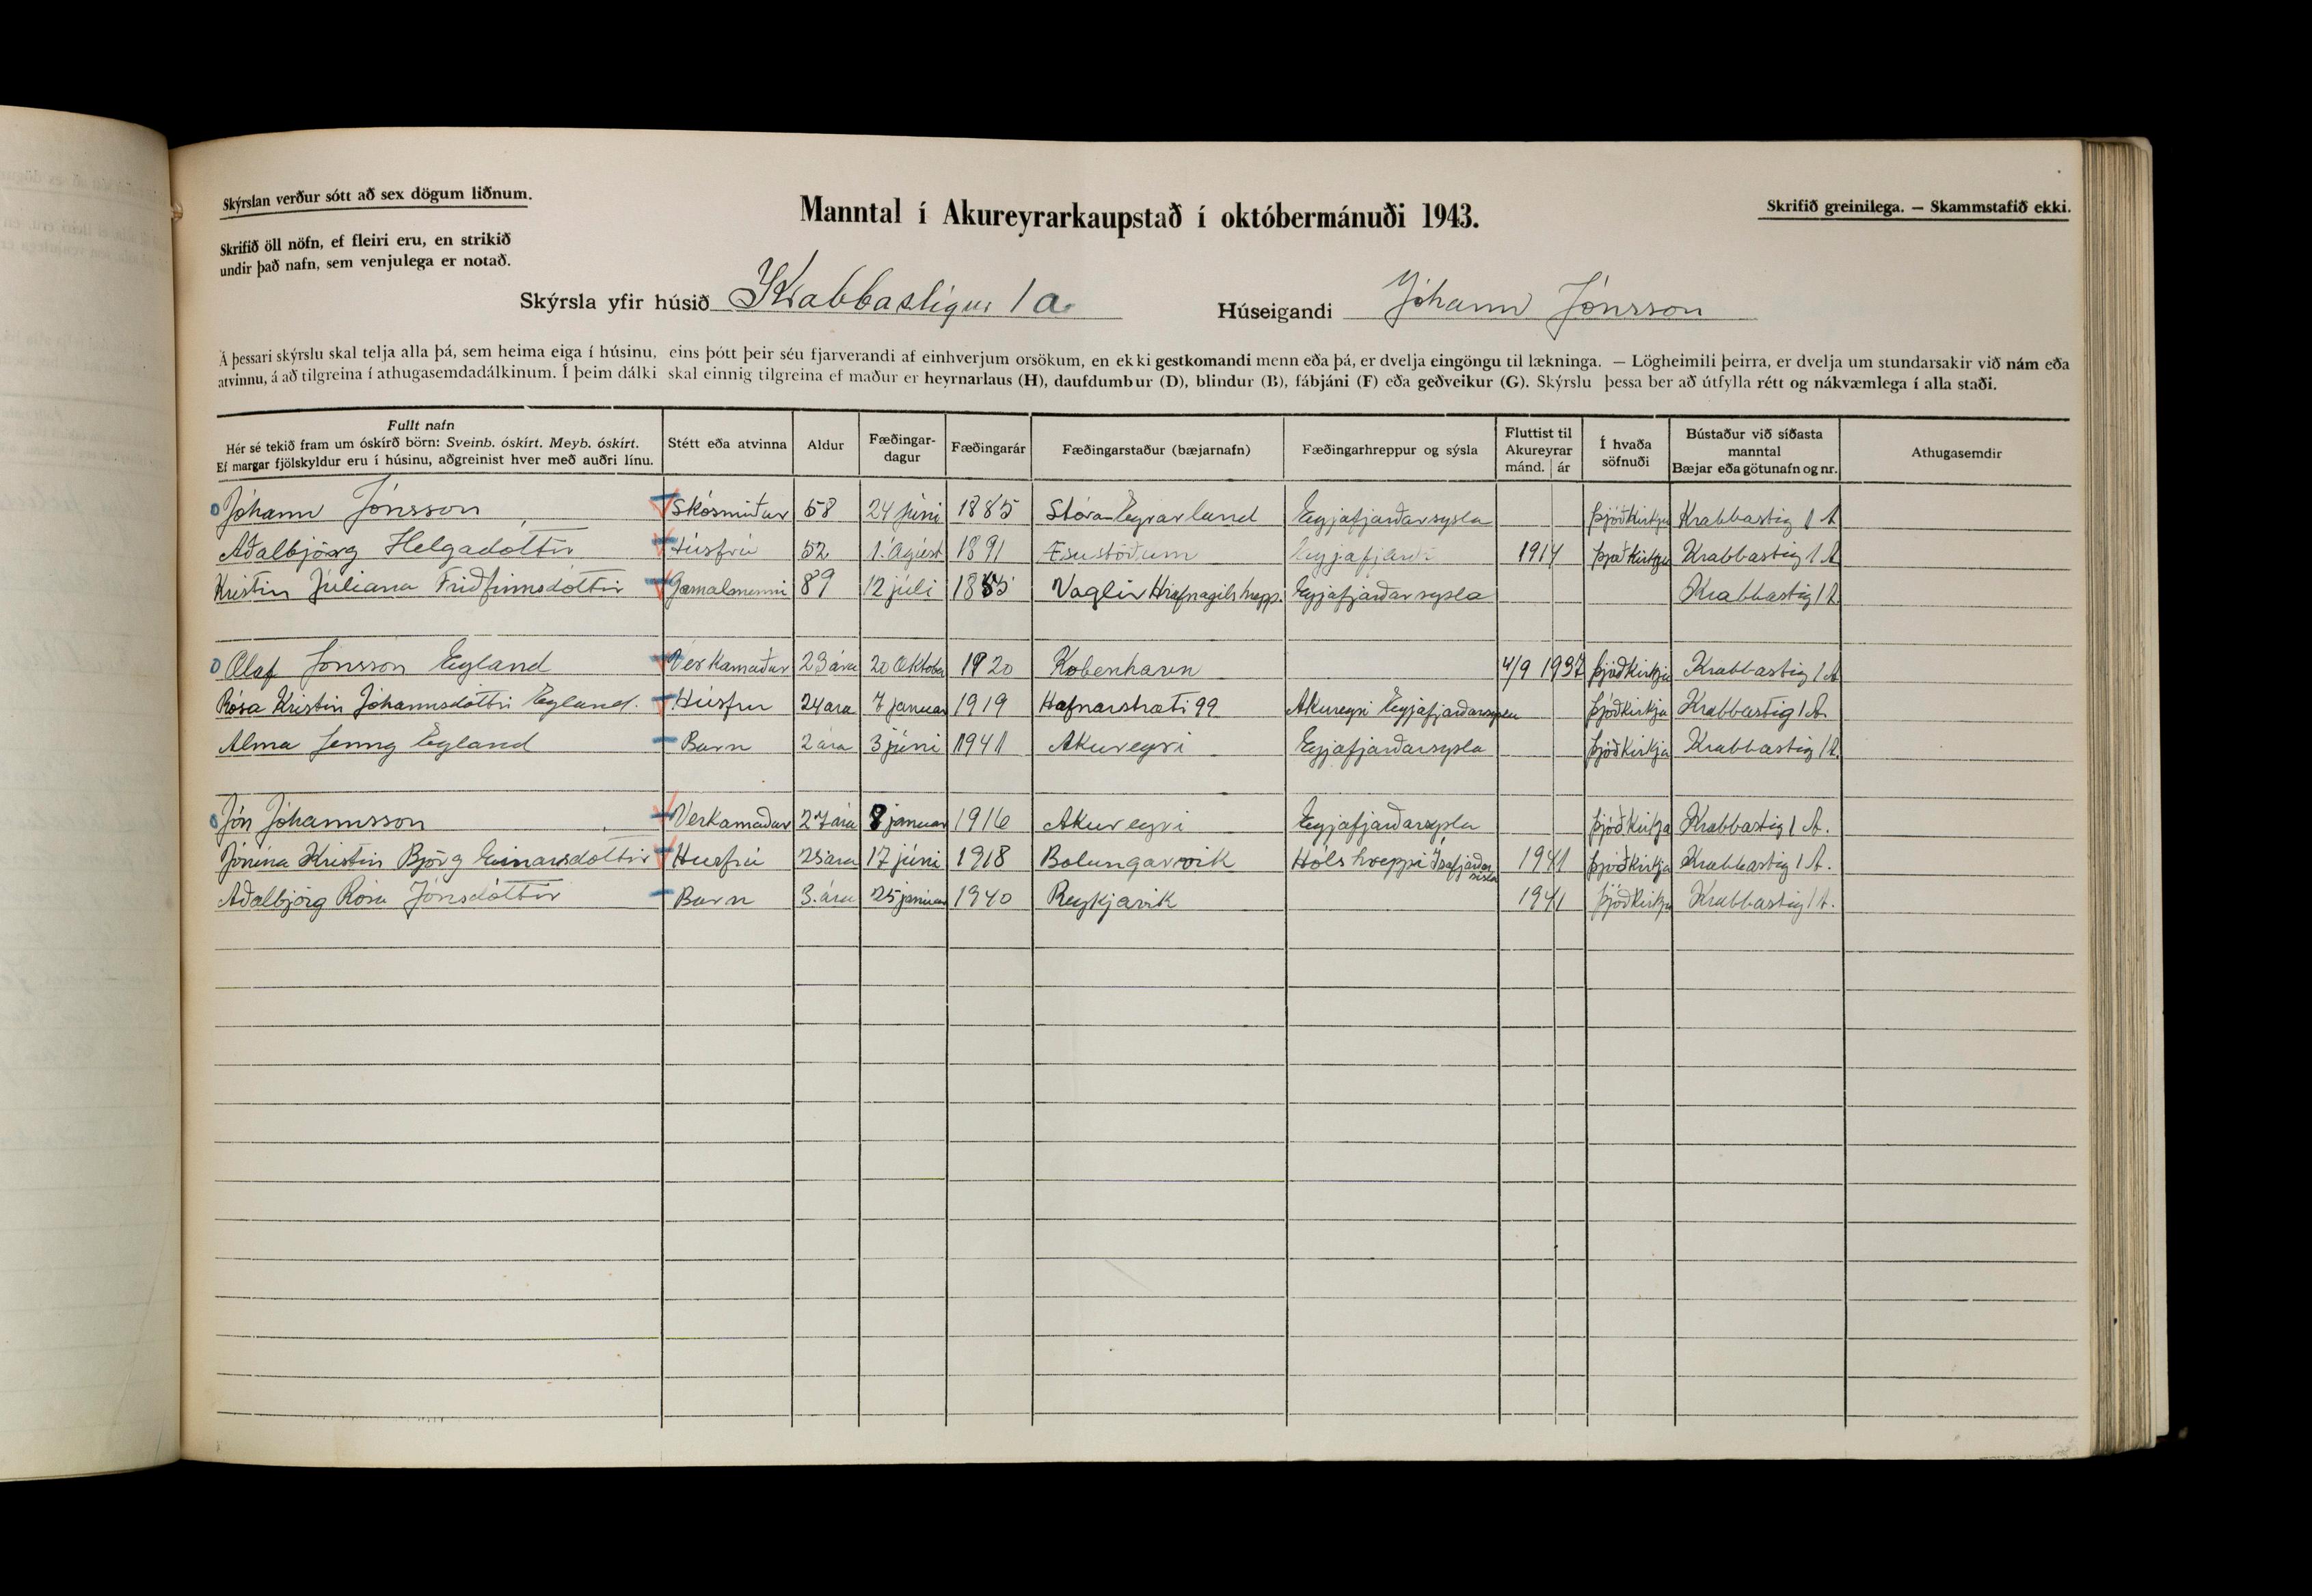 Skýrslan verður sótt að sex dögum liðnum.
Manntal í Akureyrarkaupstað í októbermánuði 1943.
Skrifið greinilega. — Skammstafið ekki.
Skrifið öll nöfn, ef fleiri eru, en strikið
undir það nafn, sem venjulega er notað.
Skýrsla yfir húsið Krabbastígur 1a. Húseigandi Jóhann Jónsson
Á þessari skýrslu skal telja alla þá, sem heima eiga í húsinu, eins þótt þeir séu fjarverandi af einhverjum orsökum, en ekki gestkomandi menn eða þá, er dvelja eingöngu til lækninga. — Lögheimili þeirra, er dvelja um stundarsakir við nám eða
atvinnu, á að tilgreina í athugasemdadálkinum. Í þeim dálki skal einnig tilgreina ef maður er heyrnarlaus (H), daufdumbur (D), blindur (B), fábjáni (F) eða geðveikur (G). Skýrslu þessa ber að útfylla rétt og nákvæmlega í alla staði.
Fullt nafn
Hér sé tekið fram um óskírð börn: Sveinb. óskírt. Meyb. óskírt.
Ef margar fjölskyldur eru í húsinu, aðgreinist hver með auðri línu.
Stétt eða atvinna
Aldur
Fæðingar-
dagur
Fæðingarár
Fæðingarstaður (bæjarnafn)
Fæðingarhreppur og sýsla
Fluttist til
Akureyrar
mánd. ár
Í hvaða
söfnuði
Bústaður við síðasta
manntal
Bæjar eða götunafn og nr.
Athugasemdir
Jóhann Jónsson Skósmiður 58 24 júni 1885 Stóra-Eyrarland Eyjafjarðarsysla Þjóðkirkju Krabbastig 1 A
Aðalbjörg Helgadóttir Húsfrú 52 1. Ágúst 1891 Æsustöðum Eyjafjarð 1914 Þjóðkirkju Krabbastig 1 A
Kristin Júliana Friðfinnsdóttir Gamalmenni 89 12 júli Vaglir Hrafnagils hrepp. Eyjafjarðarsysla Krabbastig 1 A
Olaf Jónsson Egland Verkamaður 23 ára 20 Oktober 1920 Kobenhavn 4/9 1937 Þjóðkirkju Krabbastig 1 A
Rósa Kristin Jóhannsdóttir Egland. Húsfru 24 ara 7 januar 1919 Hafnarstræti 99 Akureyri Eyjafjarðarsyslu Þjóðkirkja Krabbastig 1 A.
Alma Jenny Egland Barn 2 ára 3 júni 1941 Akureyri Eyjafjarðarsysla Þjóðkirkja Krabbastig 1 A.
Jón Jóhannsson Verkamaður 27 ára 8 januar 1916 Akureyri Eyjafjarðarsysla Þjóðkirkja Krabbastig 1 A.
Jónína Kristin Björg Einarsdóttir Husfrú 25 ara 17 júni 1918 Bolungarvik Hóls hreppi Ísafjarðar sisla 1941 Þjóðkirkja Krabbastig 1 A.
Aðalbjörg Rósa Jónsdóttir Barn 3. ára 25 januar 1940 Reykjavik 1941 Þjóðkirkju Krabbastig 1 A.